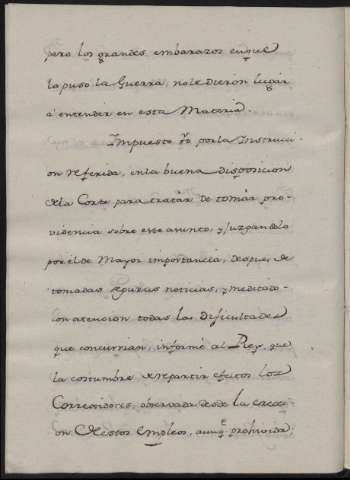 pero los grandes embarazos en que
la puso la Guerra, no le dieron lugar
á entender en esta Materia.
Impuesto yo por la Instrucci-
on referida, en la buena disposicion
de la Corte para tratár de tomár pro-
videncia sobre este asunto, y juzgandolo
por el de Mayor importancia; despues de
tomadas seguras noticias, y meditado
con atencion todas las Dificultades
que concurrian, informé al Rey, que
la costumbre de repartir efectos los
Corregidores, observada desde la erecci-
on de estos Empleos, aunq.e prohivida,